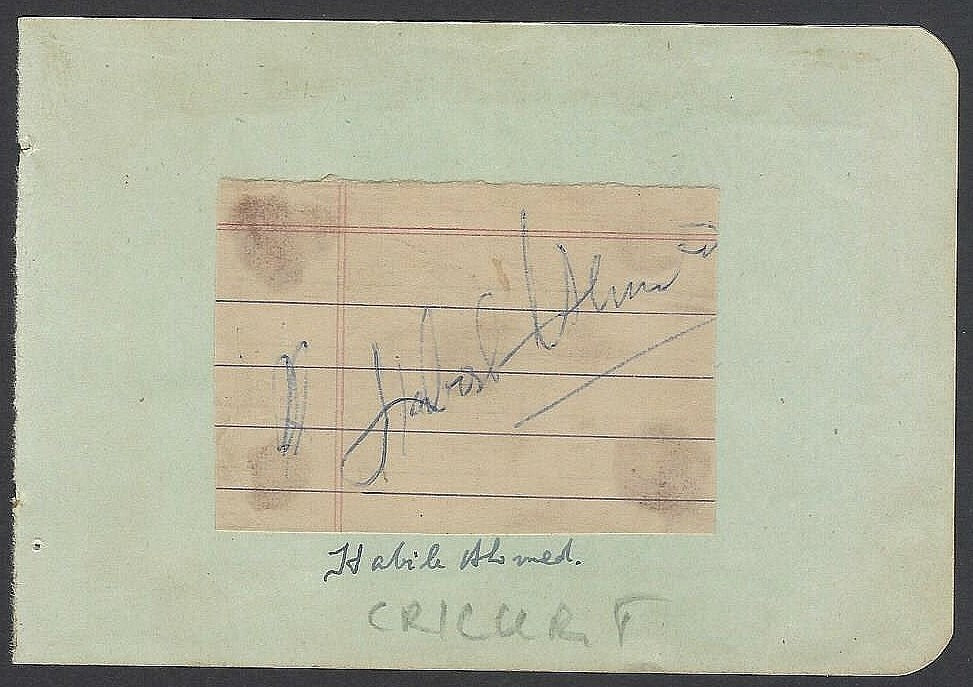 Habib Ahmed
Habib Ahmed.
CRICKET